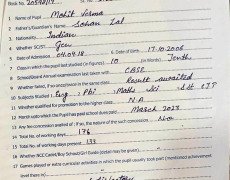 Book No.
1. Name of Pupil Mohit Verma
2. Father's/Guardian's Name Sohan Lal
3. Nationality Indian
4. Whether SC/ST Gen
5. Date of Admission 04.04.18 6. Date of Birth 17.10.2006
7. Class in which the pupil last studied (in figures) 10 (in words) Tenth
8. School/Board Annual examination last taken with CBSE
9. Whether failed, if so once/twice in the same class Result awaited
10. Subjects Studied Eng, Pbi, Maths, Sci
11. Whether qualified for promotion to the higher class N.A
12. Month upto which the Pupil has paid school dues March 2023
13. Any fee concession availed of : If so, the nature of such concession No
14. Total No. of working days 176
15. Total No. of working days present
16. Whether NCC Cadet/Boy Scout/Girl Guide (details may be given)
17. Games played or extra curricular activities in which the pupil usually took part (mentioned achievement level therein)